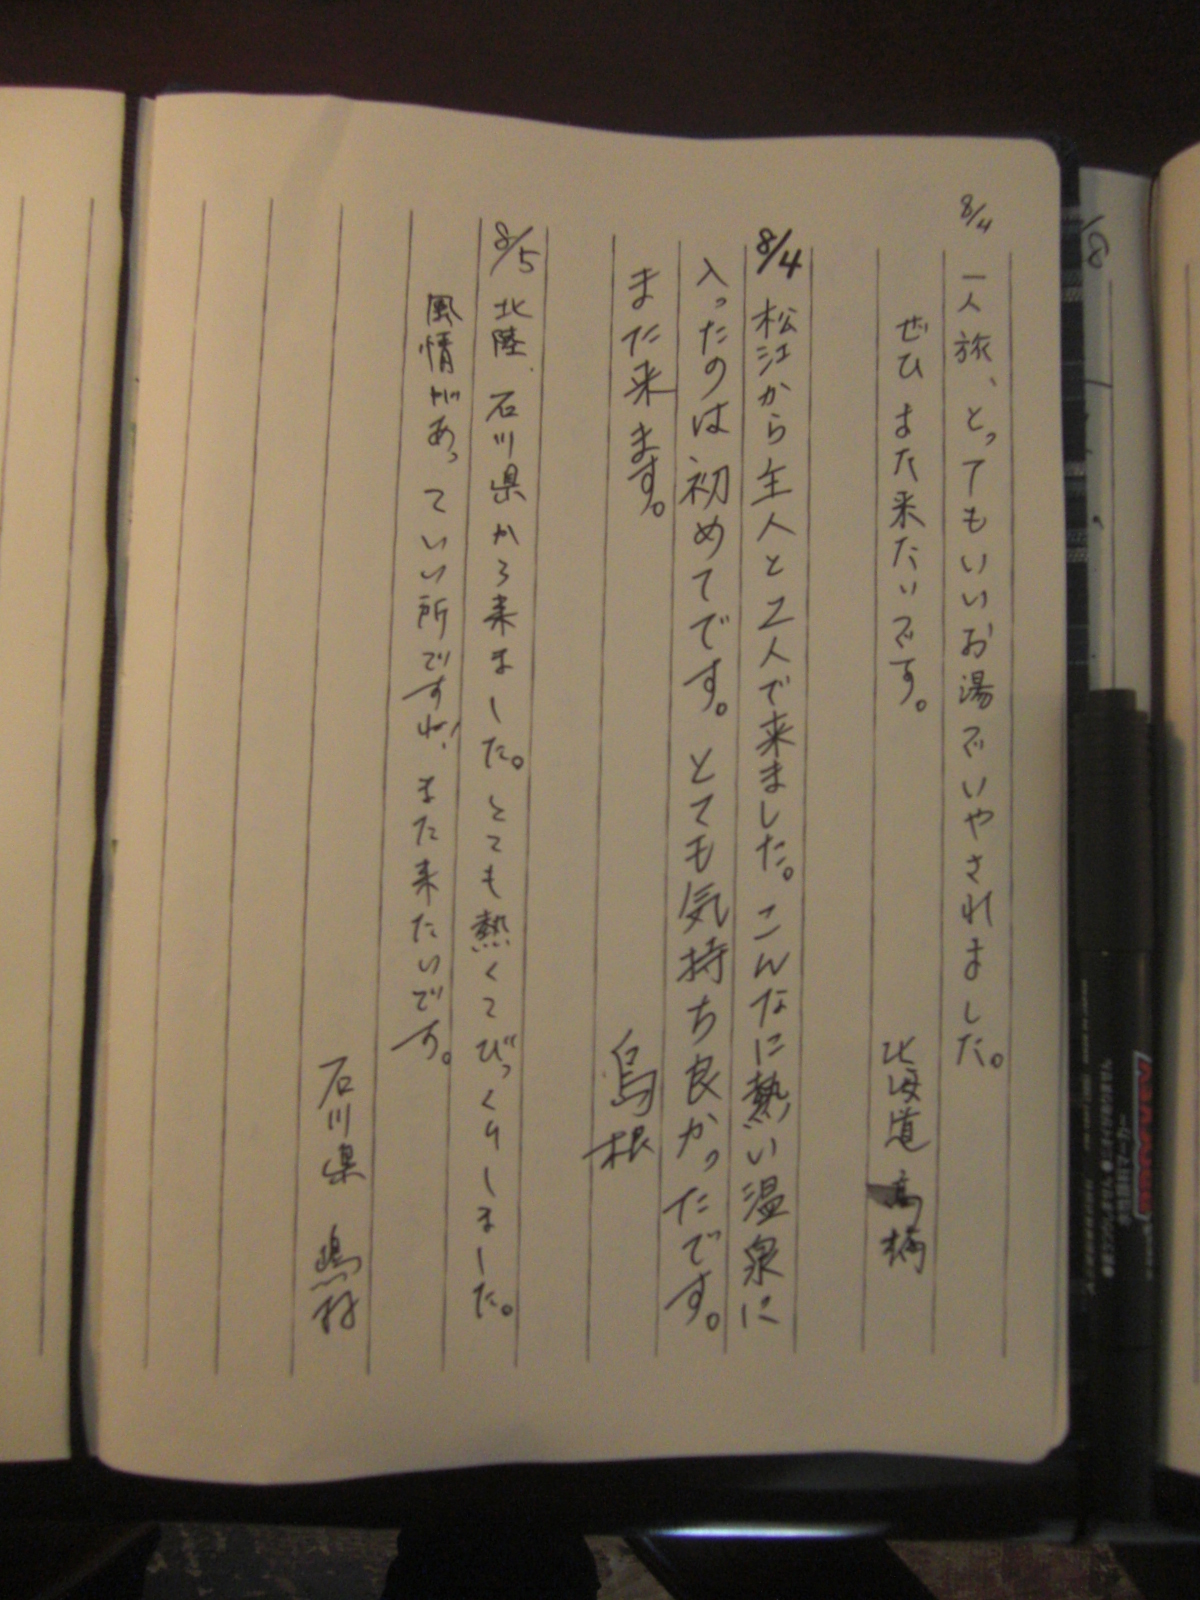 8/4 一人旅、とってもいいお湯でいやされました。
ぜひまた来たいです。
北海道 高橋
8/4 松江から主人と2人で来ました。こんなに熱い温泉に
入ったのは初めてです。とても気持ち良かったです。
また来ます。
島根
8/5 北陸、石川県から来ました。とても熱くてびっくりしました。
風情があっていい所ですね!また来たいです。
石川県
水性顔料マーカー